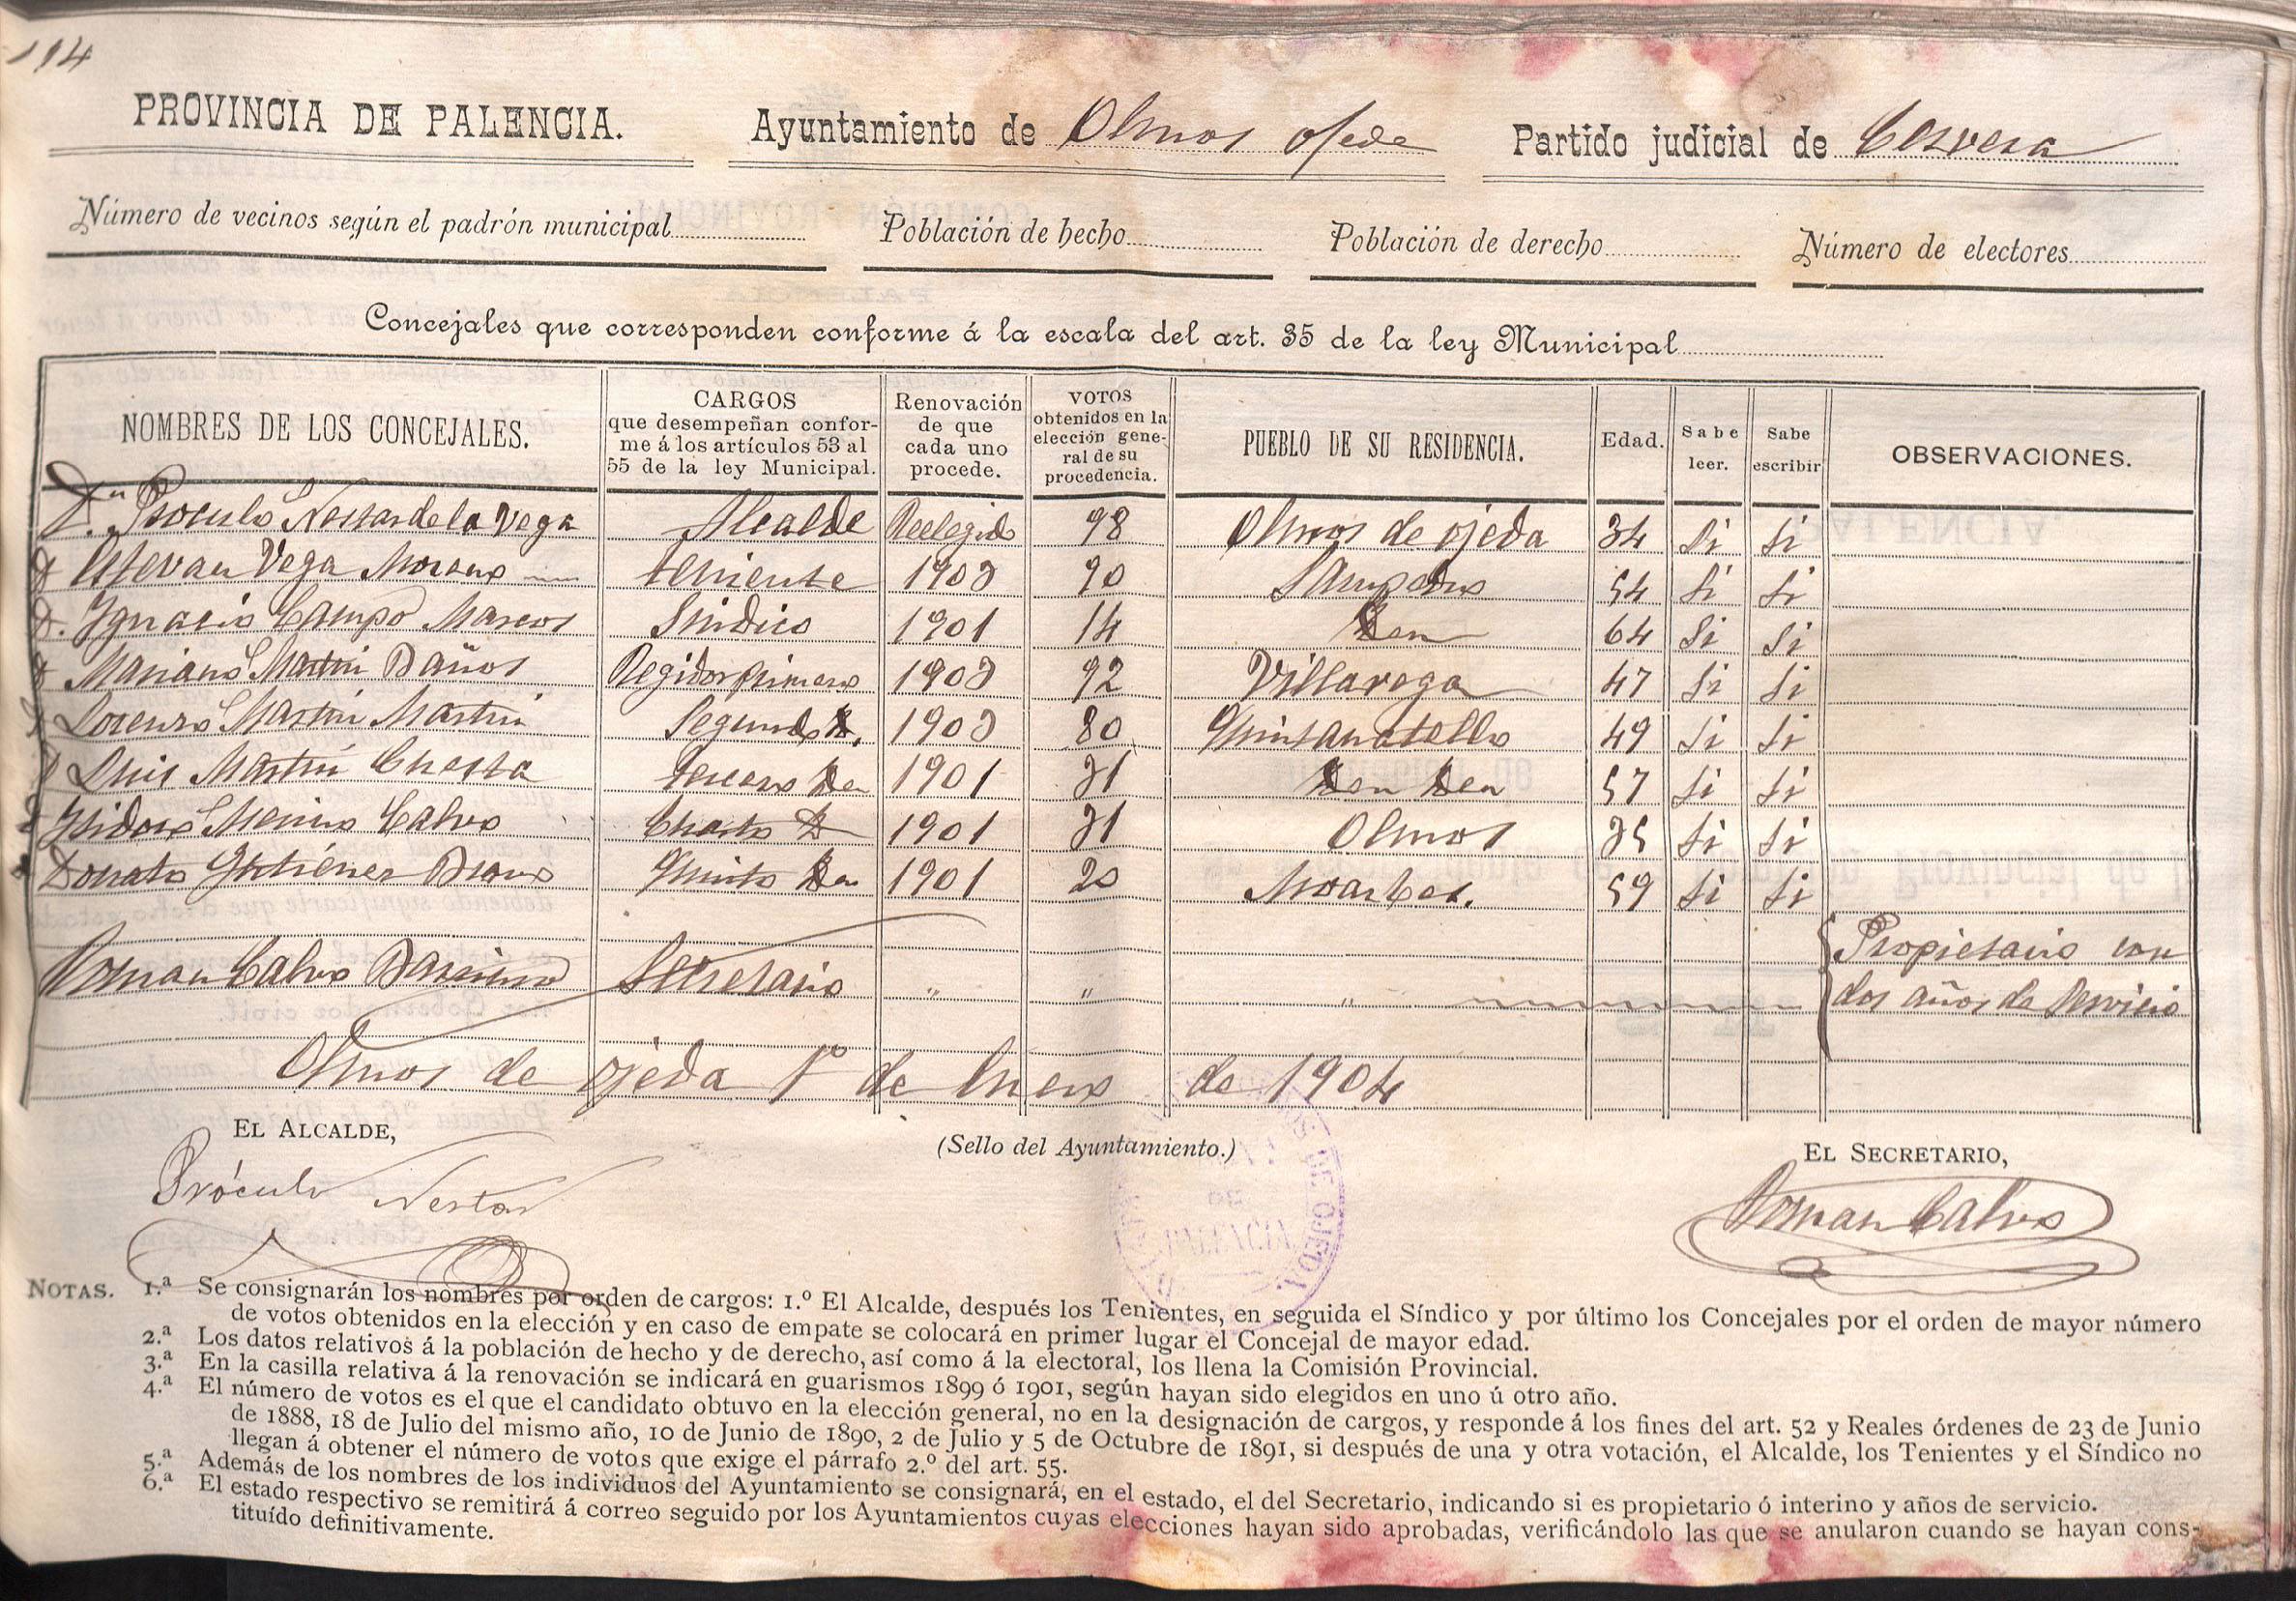 194
PROVINCIA DE PALENCIA. Ayuntamiento de Olmos ojeda Partido judicial de Cervera
Número de vecinos según el padrón municipal Población de hecho Población de derecho Número de electores
Concejales que corresponden conforme á la escala del art. 35 de la ley Municipal
NOMBRES DE LOS CONCEJALES. CARGOS que desempeñan conforme á los artículos 53 al 55 de la ley Municipal. Renovación de que cada uno procede. VOTOS obtenidos en la elección general de su procedencia. PUEBLO DE SU RESIDENCIA. Edad. Sabe leer. Sabe escribir OBSERVACIONES.
Dn. Proculo Nestar de la Vega Alcalde Reelegido 98 Olmos de ojeda 34 Si Si
D Estevan Vega Moreno teniente 1903 90 Sampedro 54 Si Si
D. Ygnacio Campo Marcos Sindico 1901 14 Den 64 Si Si
D Mariano Martin Baños Regidor primero 1903 92 Villavega 47 Si Si
D Lorenzo Martin Martin Segundo D. 1903 80 Quintanatello 49 Si Si
D Luis Martin Cuesta tercero Den 1901 31 Den Den 57 Si Si
Ysidoro Merino Calvo Cuarto D 1901 31 Olmos 35 Si Si
Donato Gutierrez Bravo Quinto Den 1901 20 Moarbes. 59 Si Si
Roman Calvo Secretario " " " Propietario con
dos años de Servicio
Olmos de ojeda 1º de Enero de 1904
EL ALCALDE, (Sello del Ayuntamiento.) EL SECRETARIO,
Próculo Nestar Roman Calvo
DE OJEDA.
PALENCIA
NOTAS. 1.ª Se consignarán los nombres por orden de cargos: 1.º El Alcalde, después los Tenientes, en seguida el Síndico y por último los Concejales por el orden de mayor número
de votos obtenidos en la elección y en caso de empate se colocará en primer lugar el Concejal de mayor edad.
2.ª Los datos relativos á la población de hecho y de derecho, así como á la electoral, los llena la Comisión Provincial.
3.ª En la casilla relativa á la renovación se indicará en guarismos 1899 ó 1901, según hayan sido elegidos en uno ú otro año.
4.ª El número de votos es el que el candidato obtuvo en la elección general, no en la designación de cargos, y responde á los fines del art. 52 y Reales órdenes de 23 de Junio
de 1888, 18 de Julio del mismo año, 10 de Junio de 1890, 2 de Julio y 5 de Octubre de 1891, si después de una y otra votación, el Alcalde, los Tenientes y el Síndico no
llegan á obtener el número de votos que exige el párrafo 2.º del art. 55.
5.ª Además de los nombres de los individuos del Ayuntamiento se consignará, en el estado, el del Secretario, indicando si es propietario ó interino y años de servicio.
6.ª El estado respectivo se remitirá á correo seguido por los Ayuntamientos cuyas elecciones hayan sido aprobadas, verificándolo las que se anularon cuando se hayan cons-
tituído definitivamente.